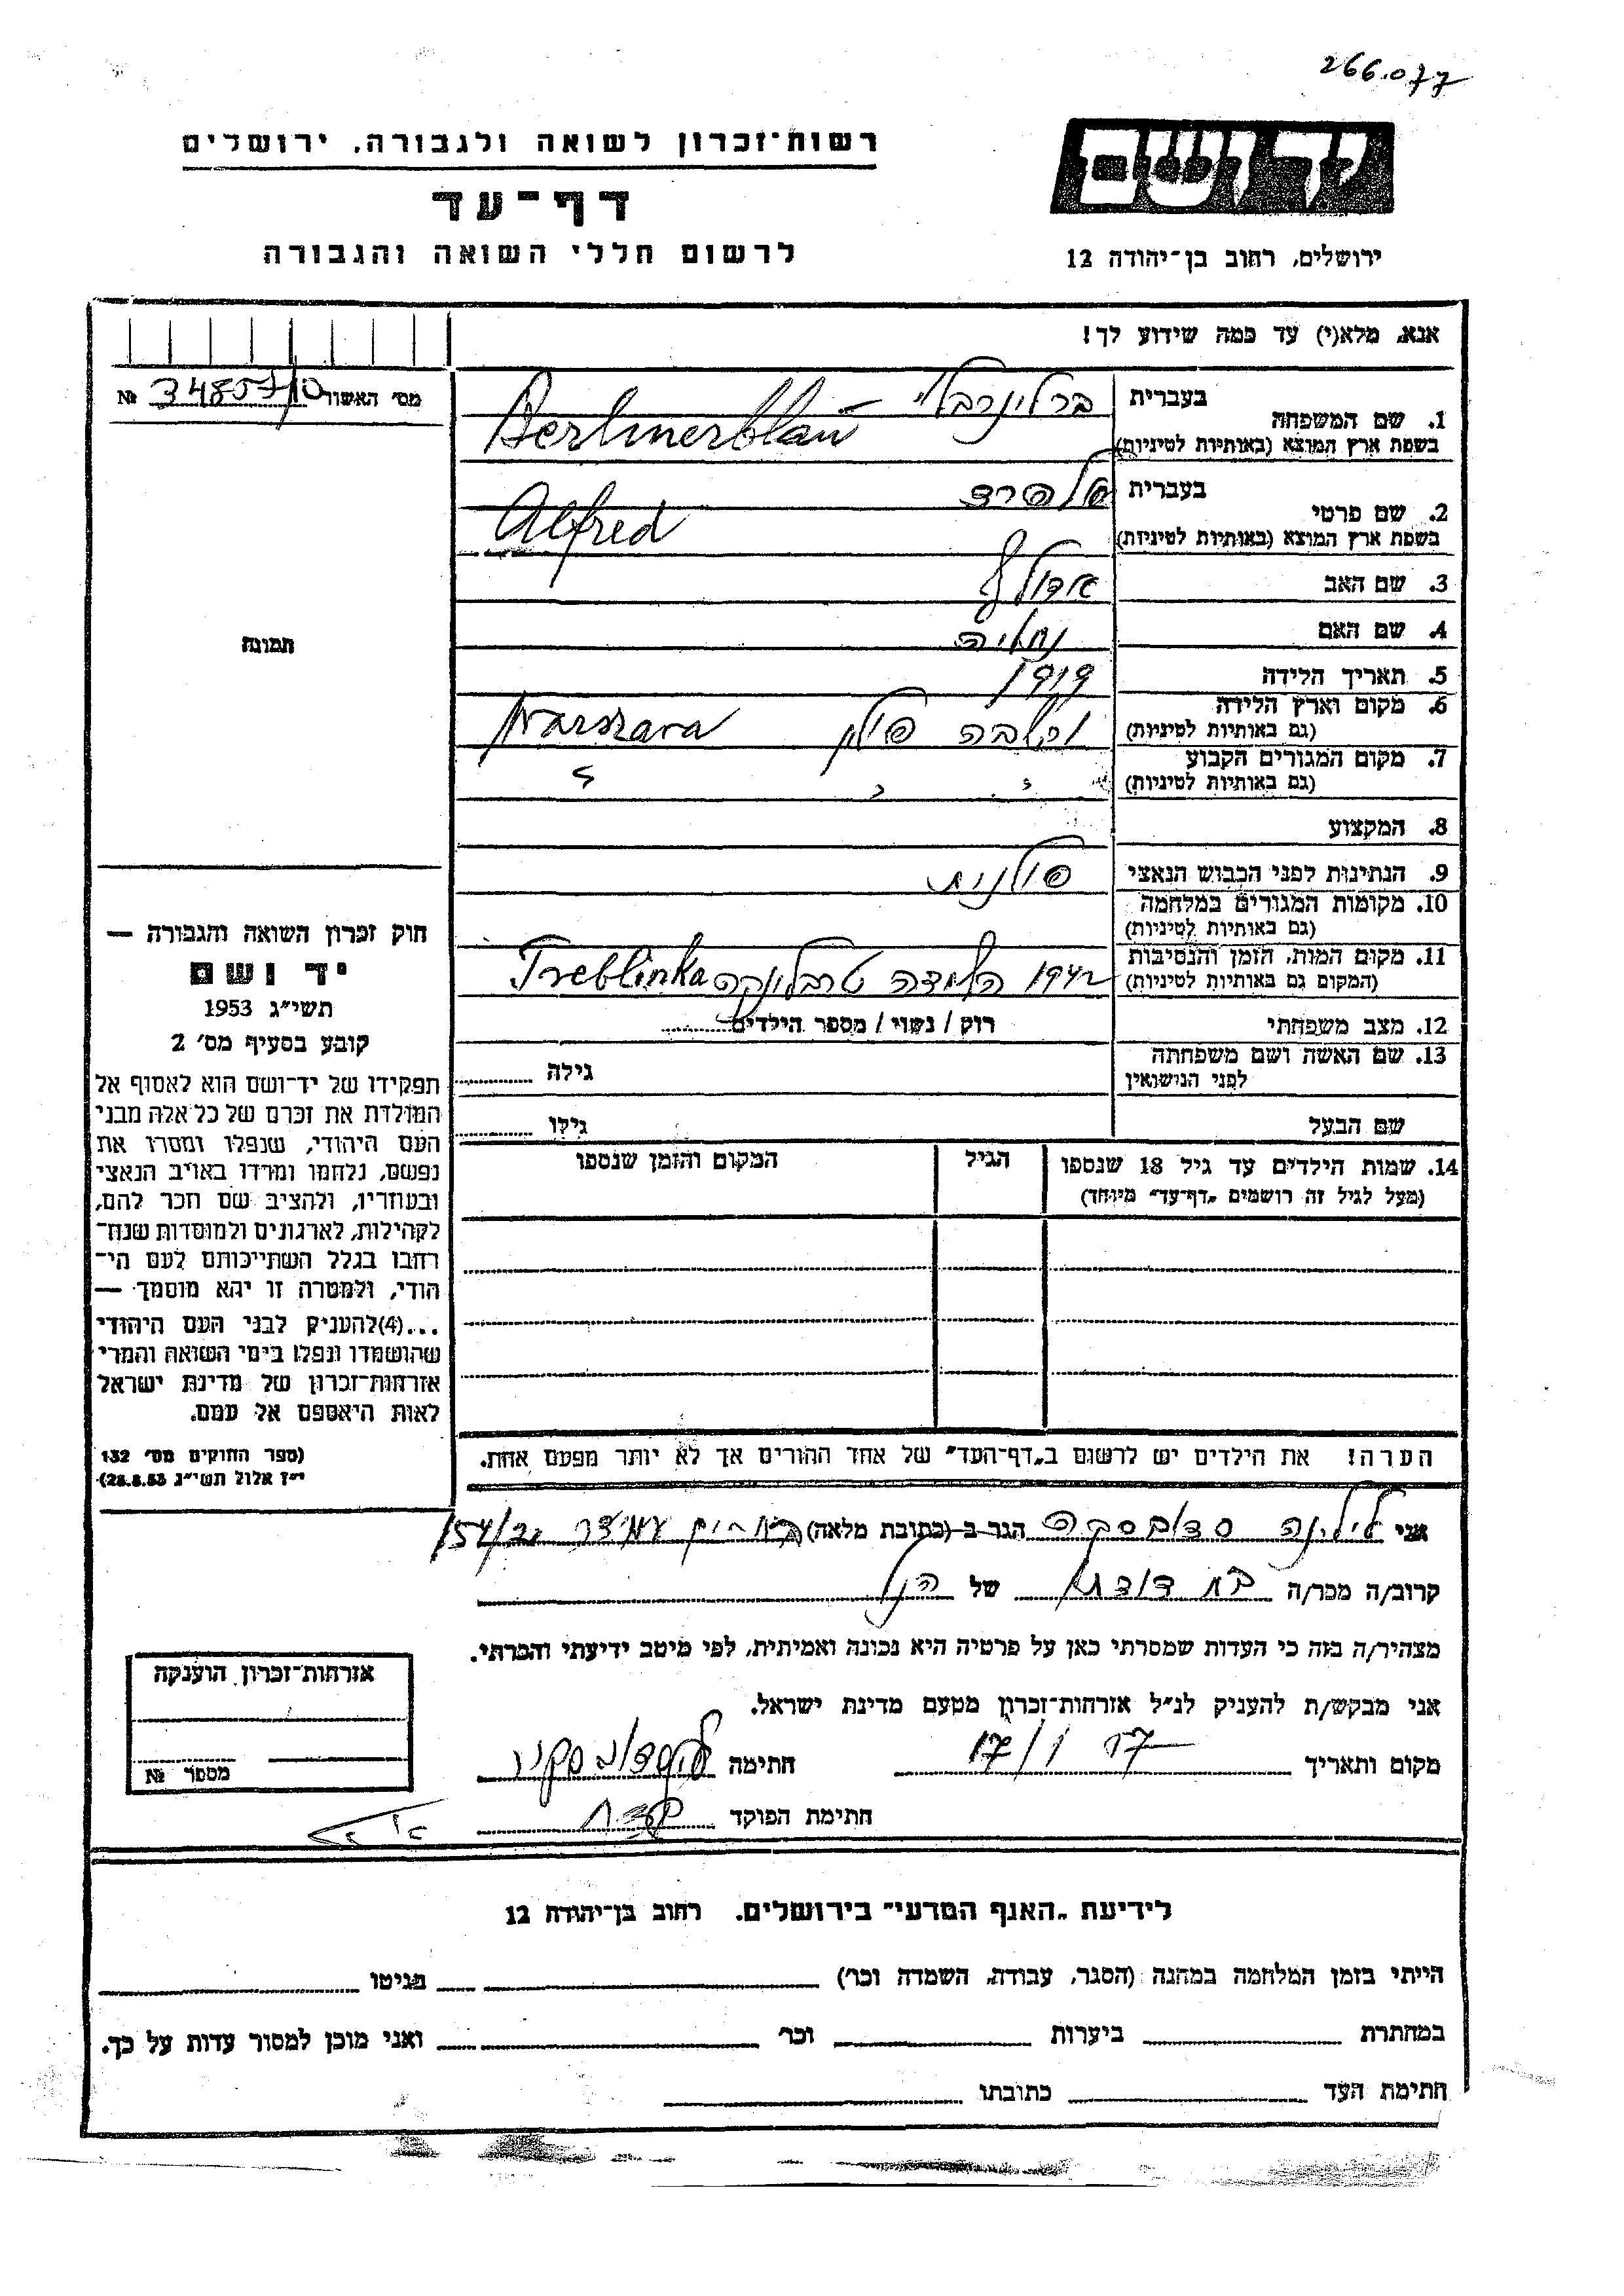 266.077
רשות־זכרון לשואה ולגבורה, ירושלים
יד ושם
דף־עד
לרשום חללי השואה והגבורה
ירושלים, רחוב בן־יהודה 12
אנא, מלא(י) עד כמה שידוע לך!
מס׳ האשור № 
1. שם המשפחה בעברית ברלינרבלוי
בשפת ארץ המוצא (באותיות לטיניות) Berlinerblau
2. שם פרטי בעברית אלפרד
בשפת ארץ המוצא (באותיות לטיניות) Alfred
3. שם האב אדולף
4. שם האם
5. תאריך הלידה 1919
6. מקום וארץ הלידה ורשבה פולין Warszawa
(גם באותיות לטיניות)
7. מקום המגורים הקבוע
(גם באותיות לטיניות)
8. המקצוע
9. הנתינות לפני הכבוש הנאצי פולנית
10. מקומות המגורים במלחמה
(גם באותיות לטיניות)
11. מקום המות, הזמן והנסיבות 1942 השמדה טרבלינקה Treblinka
(המקום גם באותיות לטיניות)
12. מצב משפחתי רוק / נשוי / מספר הילדים
13. שם האשה ושם משפחתה גילה
לפני הנישואין
שם הבעל גילו
14. שמות הילדים עד גיל 18 שנספו הגיל המקום והזמן שנספו
(מעל לגיל זה רושמים „דף־עד״ מיוחד)
הערה! את הילדים יש לרשום ב„דף־העד״ של אחד ההורים אך לא יותר מפעם אחת.
תמונה
חוק זכרון השואה והגבורה —
יד ושם
תשי״ג 1953
קובע בסעיף מס׳ 2
תפקידו של יד־ושם הוא לאסוף אל
המולדת את זכרם של כל אלה מבני
העם היהודי, שנפלו ומסרו את
נפשם, נלחמו ומרדו באויב הנאצי
ובעוזריו, ולהציב שם וזכר להם,
לקהילות, לארגונים ולמוסדות שנח־
רבו בגלל השתייכותם לעם הי־
הודי, ולמטרה זו יהא מוסמך —
...(4)להעניק לבני העם היהודי
שהושמדו ונפלו בימי השואה והמרי
אזרחות־זכרון של מדינת ישראל
לאות היאספם אל עמם.
(ספר החוקים מס׳ 132
י״ז אלול תשי״ג 28.8.53)
אני לילינה סדובסקה הגר ב (כתובת מלאה) עמידר 154/22
קרוב/ה מכר/ה בת דודה של הנ״ל
מצהיר/ה בזה כי העדות שמסרתי כאן על פרטיה היא נכונה ואמיתית, לפי מיטב ידיעתי והכרתי.
אני מבקש/ת להעניק לנ״ל אזרחות־זכרון מטעם מדינת ישראל.
מקום ותאריך חתימה
חתימת הפוקד
אזרחות־זכרון הוענקה
מספר №
לידיעת „האגף המדעי״ בירושלים. רחוב בן־יהודה 12
הייתי בזמן המלחמה במחנה (הסגר, עבודה, השמדה וכו׳) בגיטו
במחתרת ביערות וכו׳ ואני מוכן למסור עדות על כך.
חתימת העד כתובתו